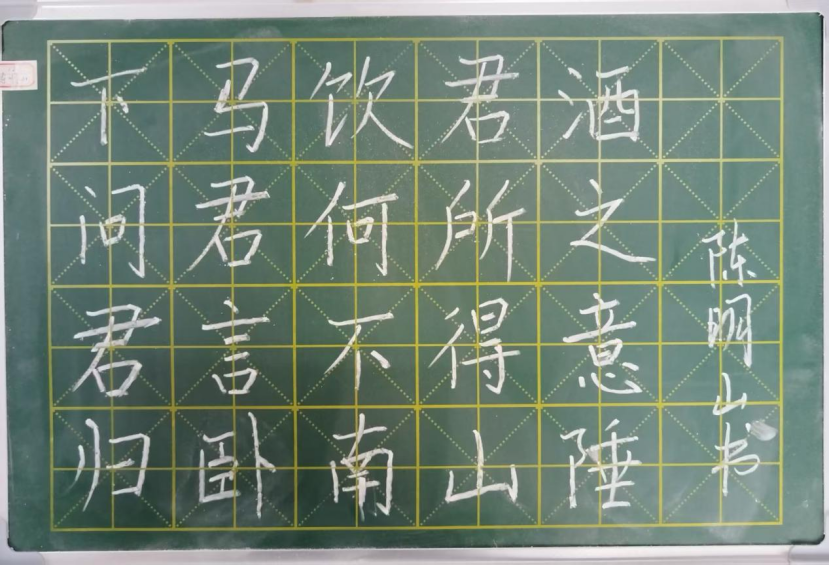 下马饮君酒
问君何所之
君言不得意
归卧南山陲
陈明山书